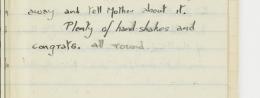 away and tell Mother about it.
Plenty of hand-shakes and
congrats. all round